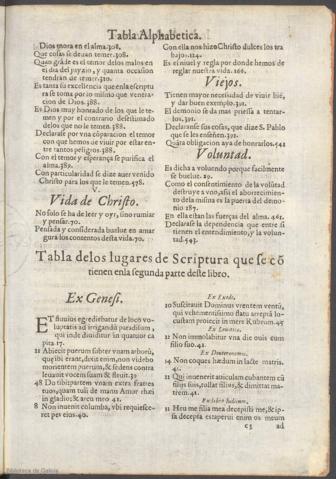 Tabla Alphabetica.
Dios mora en el alma.308.
Que cosas se deuan temer.308.
Quan grãde es el temor delos malos en
el dia del juyzio, y quanta occasion
tendran de temer.310.
Es tanta su excellencia que enla escriptu
ra se toma por lo mismo que venera-
cion de Dios.388.
Es Dios muy honrado de los que le te-
men y por el contrario desestimado
delos que no le temen.388.
Declarase por vna cõparacion el temor
con que hemos de viuir por estar en-
tre tantos peligros.388.
Con el temor y esperança se purifica el
alma.389.
Con particularidad se dize auer venido
Christo para los que le temen.578.
V.
Vida de Christo.
No solo se ha de leer y oyr, sino rumiar
y pensar.70.
Pensada y considerada buelue en amar
gura los contentos desta vida.70.
Con ella nos hizo Christo dulces los tra
bajos.124.
Es el niuel y regla por donde hemos de
reglar nuestra vida.166.
Viejos.
Tienen mayor necessidad de viuir biẽ,
y dar buen exemplo.391.
El demonio se da mas priessa a tentar-
los.391.
Declaranse las cosas, que dize S. Pablo
que se les enseñen.391.
Quãta obligacion aya de honrarlos.541
Voluntad.
Es dicha a voluendo porque facilmente
se buelue.29.
Como el consentimiento de la volũtad
destruye a vno, assi el aborrecimien-
to dela misma es la puerta del demo-
nio 187.
En ella estan las fuerças del alma. 461.
Declarase la dependencia que entre si
tienen el entendimiento, y la volun-
tad.543.
Tabla delos lugares de Scriptura que se cõ
tienen enla segunda parte deste libro.
Ex Genesi.
ET fluuius egrediebatur de loco vo
luptatis ad irrigandũ paradisum,
qui inde diuiditur in quatuor ca
pita 17.
21 Abiecit puerum subter vnam arborũ,
que ibi erant, dixit enim, non videbo
morientem puerum, & sedens contra
leuauit vocem suam & fleuit.
48 Do tibi partem vnam extra fratres
tuos, quam tuli de manu Amor rhei
in gladio, & arcu meo 41.
8 Non inuenit columba, vbi requiesce-
ret pes eius.40.
Ex Exodo.
10 Suscitauit Dominus ventem ventũ,
qui vehementissimo flatu arreptã lo-
custam proiecit in mare Rubrum.45
Ex Leuitico.
22 Non immolabitur vna die ouis cum
filio suo.41.
Ex Deuteronomio.
14 Non coques hædum in lacte matris.
41.
22 Qui inuenerit auiculam cubantem cũ
filijs suis, tollat filios, & dimittat ma-
trem.41.
Ex libro Iudicum.
11 Heu me filia mea decepisti me, & ip-
sa decepta es aperui enim os meum
c3 ad
Biblioteca de Galicia